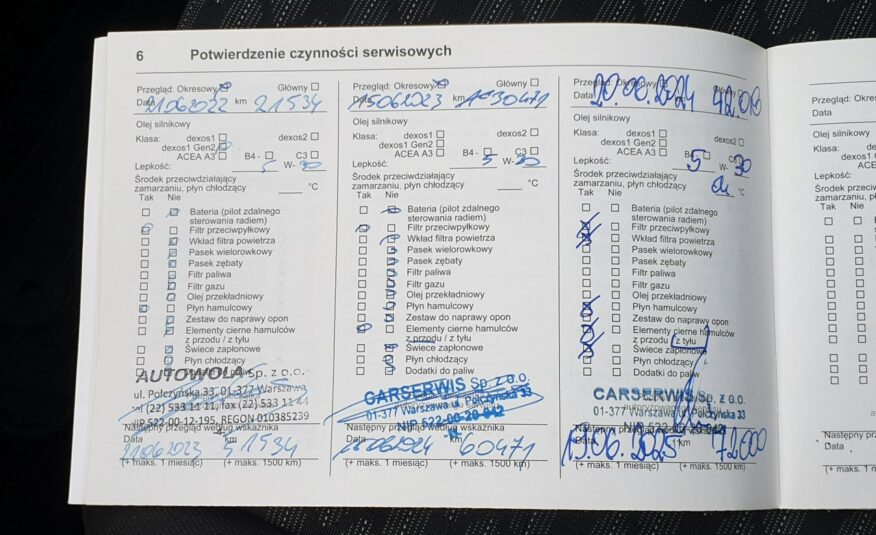 6 Potwierdzenie czynności serwisowych
Przegląd: Okresowy Główny
Data 21062022 km 21534
Olej silnikowy
Klasa: dexos1 dexos2
dexos1 Gen2
ACEA A3 B4 - C3
Lepkość: 5 W- 30
Środek przeciwdziałający
zamarzaniu, płyn chłodzący °C
Tak Nie
Bateria (pilot zdalnego
sterowania radiem)
Filtr przeciwpyłkowy
Wkład filtra powietrza
Pasek wielorowkowy
Pasek zębaty
Filtr paliwa
Filtr gazu
Olej przekładniowy
Płyn hamulcowy
Zestaw do naprawy opon
Elementy cierne hamulców
z przodu / z tyłu
Świece zapłonowe
Płyn chłodzący
AUTOWOLA Sp. z o.o.
ul. Połczyńska 33, 01-377 Warszawa
tel (22) 533 11 11, fax (22) 533 11 44
NIP 522-00-12-195, REGON 010385239
Następny przegląd według wskaźnika
Data km
21062023 51534
(+ maks. 1 miesiąc) (+ maks. 1500 km)
Przegląd: Okresowy Główny
Data 15062023 km 30471
Olej silnikowy
Klasa: dexos1 dexos2
dexos1 Gen2
ACEA A3 B4 - C3
Lepkość: 5 W- 30
Środek przeciwdziałający
zamarzaniu, płyn chłodzący °C
Tak Nie
Bateria (pilot zdalnego
sterowania radiem)
Filtr przeciwpyłkowy
Wkład filtra powietrza
Pasek wielorowkowy
Pasek zębaty
Filtr paliwa
Filtr gazu
Olej przekładniowy
Płyn hamulcowy
Zestaw do naprawy opon
Elementy cierne hamulców
z przodu / z tyłu
Świece zapłonowe
Płyn chłodzący
Dodatki do paliw
CARSERWIS Sp. z o.o.
01-377 Warszawa ul. Połczyńska 33
NIP 522-00-20-042
Następny przegląd według wskaźnika
Data km
15062024 60471
(+ maks. 1 miesiąc) (+ maks. 1500 km)
Przegląd: Okresowy Główny
Data 20.06.2024 42.018
Olej silnikowy
Klasa: dexos1 dexos2
dexos1 Gen2
ACEA A3 B4 C3
Lepkość: 5 W- 30
Środek przeciwdziałający
zamarzaniu, płyn chłodzący °C
Tak Nie
Bateria (pilot zdalnego
sterowania radiem)
Filtr przeciwpyłkowy
Wkład filtra powietrza
Pasek wielorowkowy
Pasek zębaty
Filtr paliwa
Filtr gazu
Olej przekładniowy
Płyn hamulcowy
Zestaw do naprawy opon
Elementy cierne hamulców
z przodu / z tyłu
Świece zapłonowe
Płyn chłodzący
Dodatki do paliw
CARSERWIS Sp. z o.o.
01-377 Warszawa ul. Połczyńska 33
NIP 522
Następny przegląd według wskaźnika
Data km
19.06.2025 72000
(+ maks. 1 miesiąc) (+ maks. 1500 km)
Przegląd: Okres
Data
Olej silnikowy
Klasa: dex
dexos1 G
ACEA
Lepkość:
Środek przeciwdz
zamarzaniu, płyn
Tak Nie
Następny prz
Data
(+ maks. 1 m